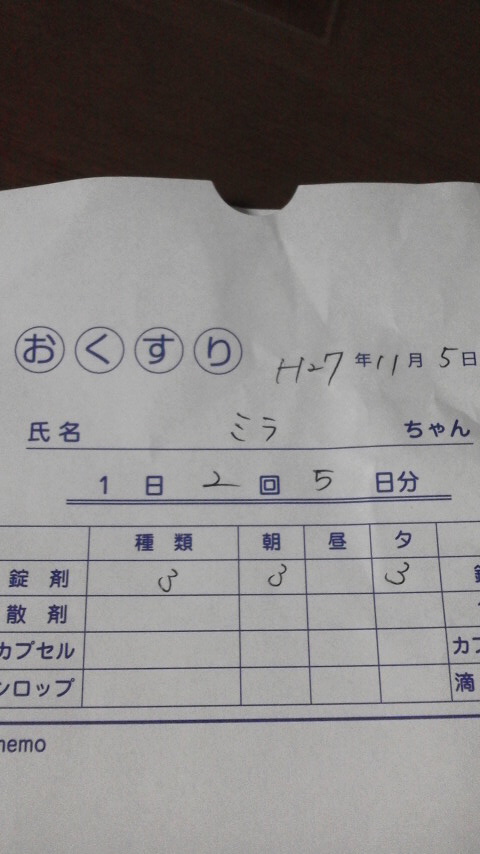 おくすり H27年11月5日
氏名 ミラ ちゃん
1日 2 回 5 日分
種類 朝 昼 夕
錠剤 3 3 3
散剤
カプセル カプ
シロップ 滴
memo